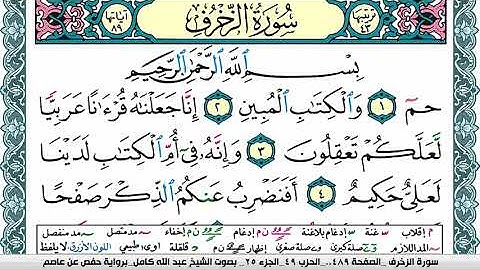 ترتيبها ٤٣ سُورَةُ الزُّخْرُفِ آياتها ٨٩
بِسْمِ ٱللَّهِ ٱلرَّحْمَٰنِ ٱلرَّحِيمِ
حمٓ ١ وَٱلْكِتَٰبِ ٱلْمُبِينِ ٢ إِنَّا جَعَلْنَٰهُ قُرْءَٰنًا عَرَبِيًّا
لَّعَلَّكُمْ تَعْقِلُونَ ٣ وَإِنَّهُۥ فِىٓ أُمِّ ٱلْكِتَٰبِ لَدَيْنَا
لَعَلِىٌّ حَكِيمٌ ٤ أَفَنَضْرِبُ عَنكُمُ ٱلذِّكْرَ صَفْحًا
م إقلاب غنة إدغام بلاغنة ن م إدغام ن م إخفاء مد متصل مد منفصل
المد اللازم صلة كبرى صلة صغرى إظهار ن م قلقلة عوض، طبيعي اللون الأزرق لا يلفظ
سورة الزخرف _الصفحة ٤٨٩_ الحزب ٤٩_الجزء ٢٥_ بصوت الشيخ عبد الله كامل_برواية حفص عن عاصم